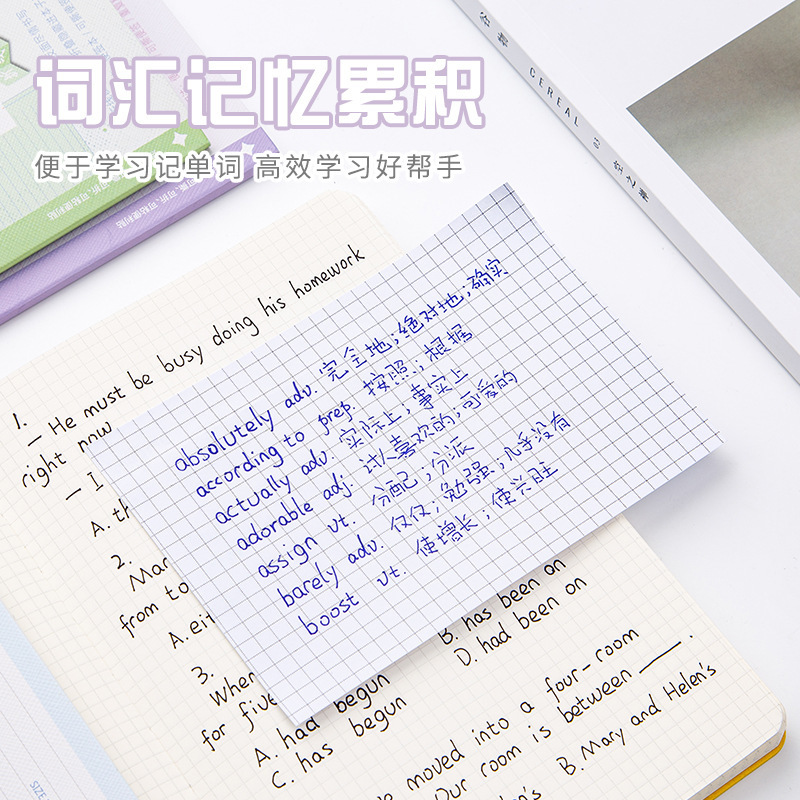 词汇记忆累积
便于学习记单词 高效学习好帮手
CEREAL
1.
— He must be busy doing his homework
right now
— I
A. th
2.
Mar
from to
A. eit
B. has been on
D. had been on
3.
When
for five
A. had begun
C. has begun
moved into a four-room
Our room is between ____.
B. Mary and Helen's
absolutely adv. 完全地；绝对地；确实
according to prep. 按照；根据
actually adv. 实际上；事实上
adorable adj. 讨人喜欢的；可爱的
assign vt. 分配；分派
barely adv. 仅仅；勉强；几乎没有
boost vt. 使增长；使兴旺
SIZE